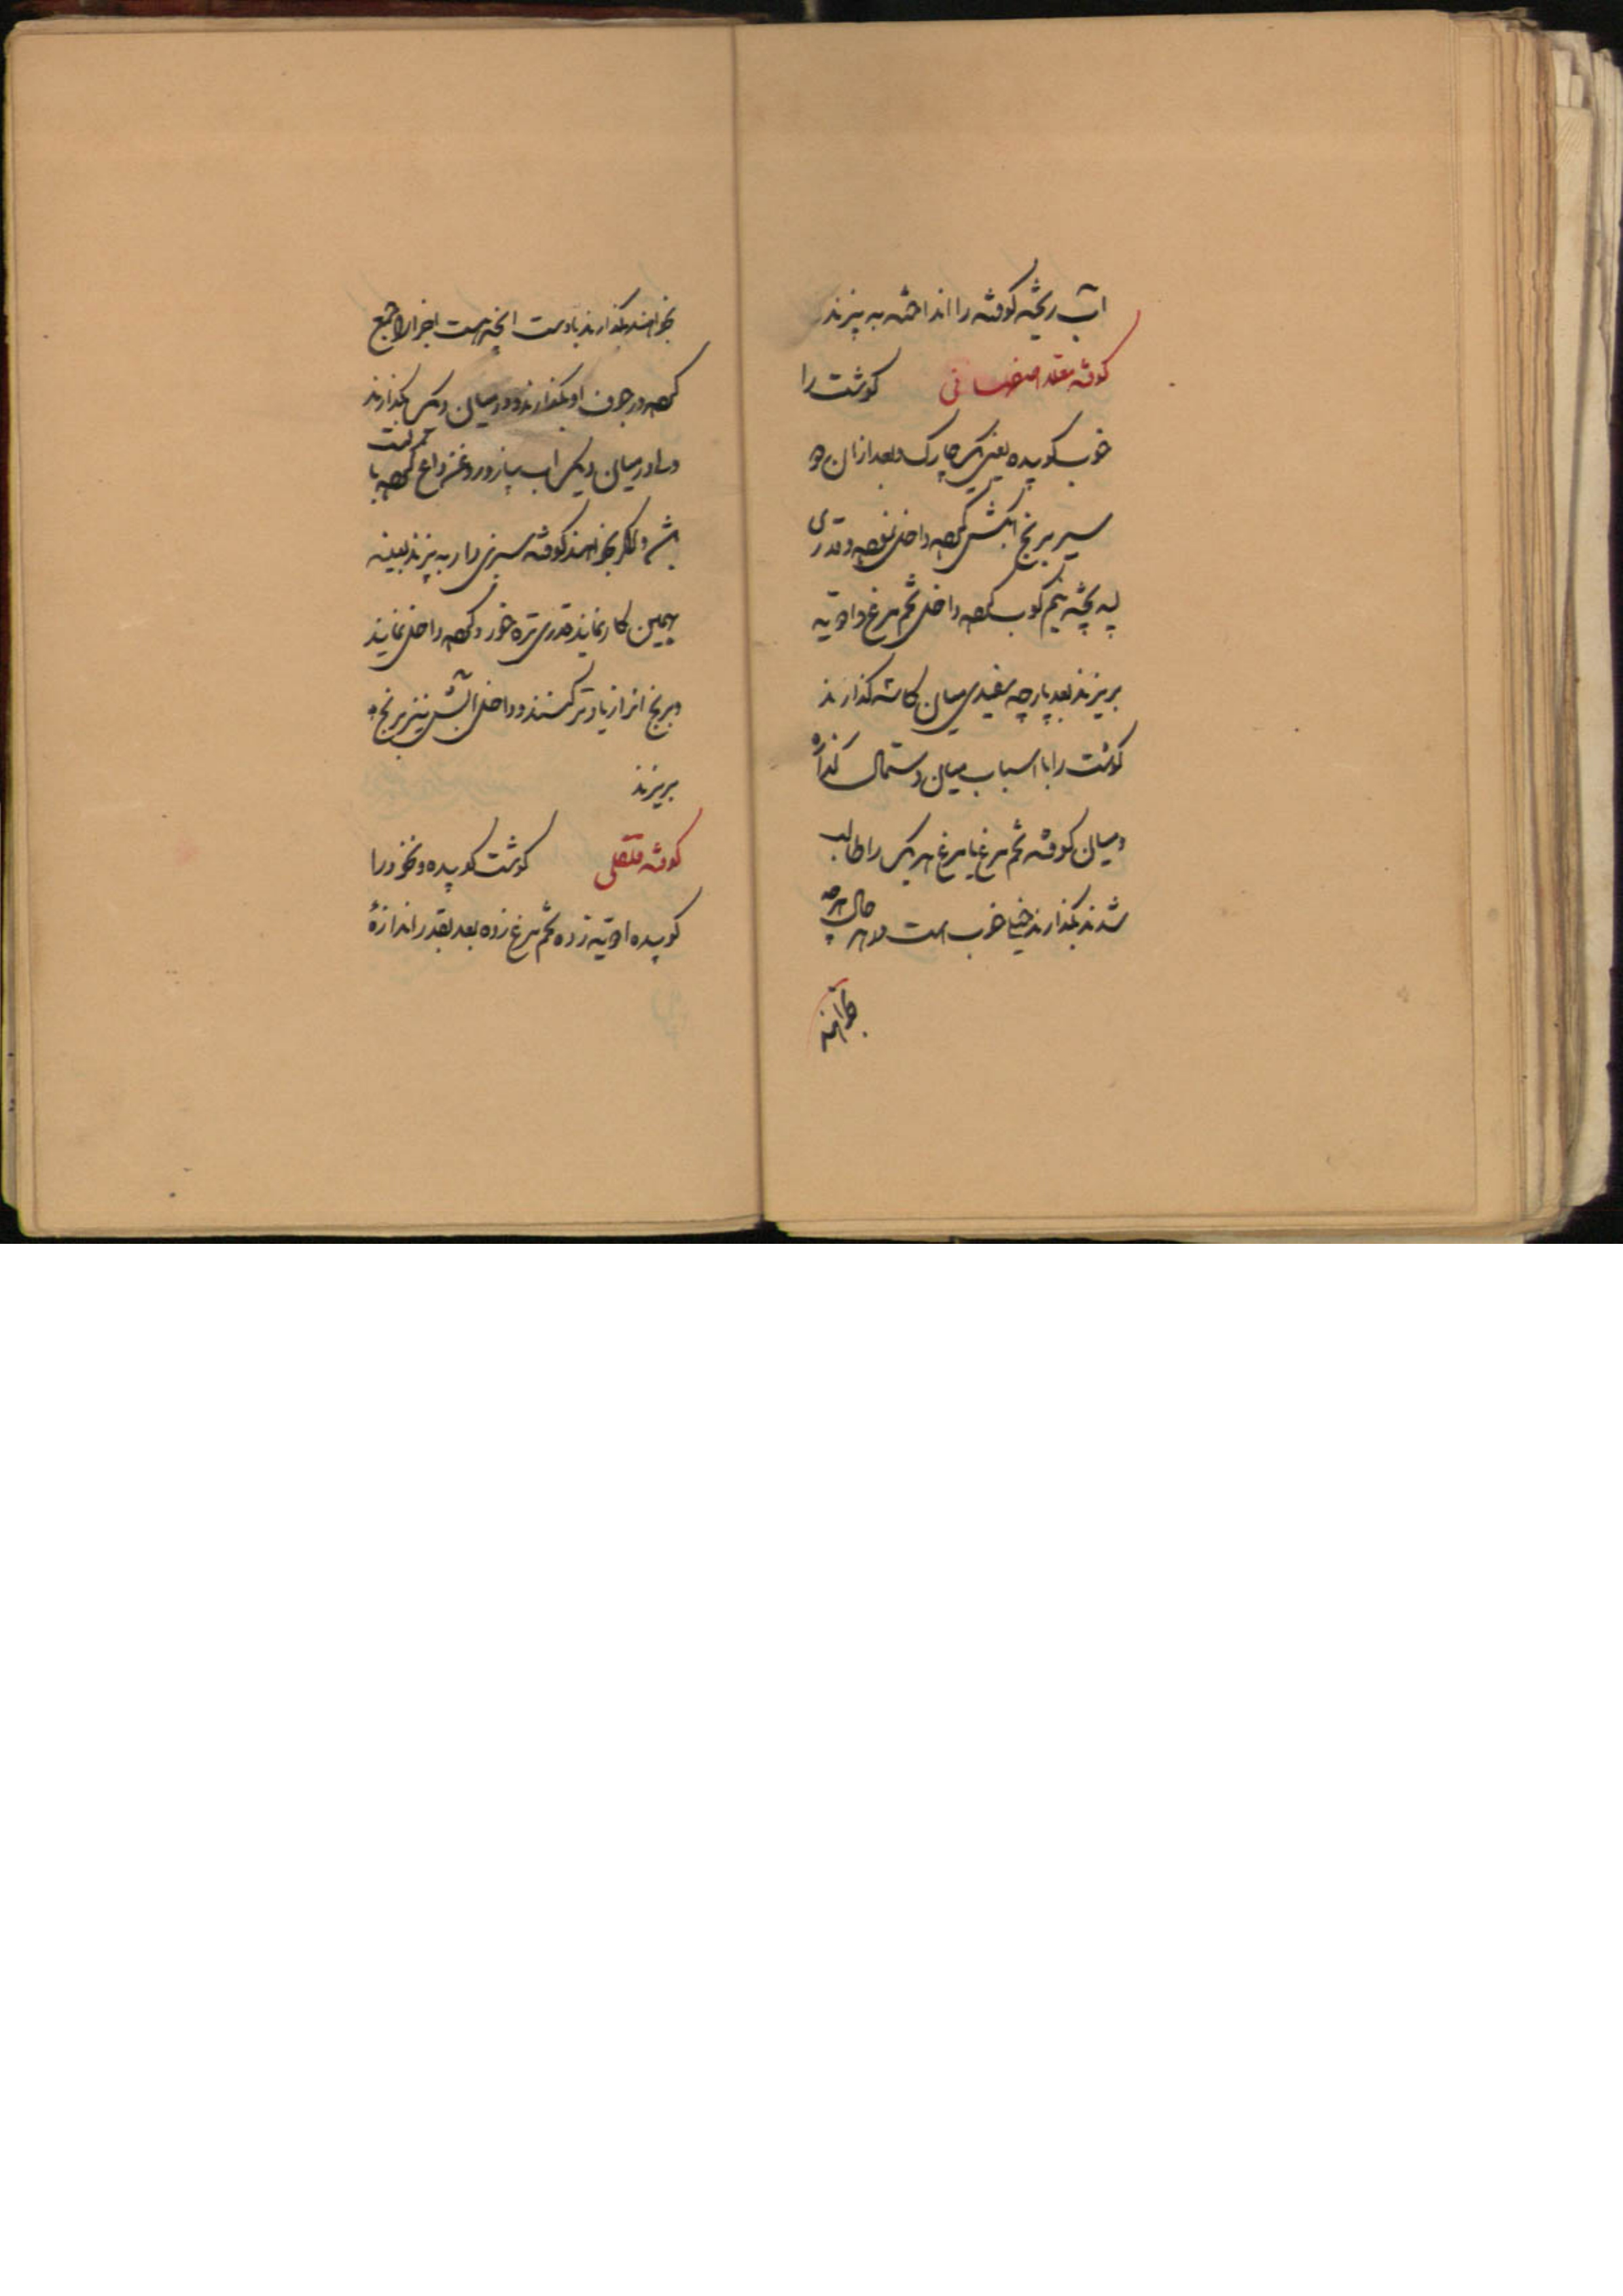 آب ریخته کوفته را انداخته به پزند
کوفته معلا اصفهانی گوشت را
خوب کوبیده یعنی یک چارک و بعد از آن دو
سیر برنج آبکش کرده داخل نموده و قدری
لپه پخته نیم کوب کرده داخل تخم مرغ و ادویه
بریزند بعد پارچه سفیدی میان کاسه گذارند
گوشت را با اسباب میان دستمال گذارده
و میان کوفته تخم مرغ یا مرغ هر یک را طالب
شدند بگذارند خیلی خوب است در هر حال هر چه
بخواهند
بخواهند بگذارند با دست آنچه هست اجزا را جمع
کرده در جوف او بگذارند و در میان دیگ بگذارند
و در میان دیگ آب پیاز و روغن داغ کرده با
باشد و اگر بخواهند کوفته سبزی دار به پزند بعینه
همین کار نمایند قدری تره خورد کرده داخل نمایند
و برنج آنرا زیادتر کنند و داخل آتش نیز برنج
بریزند
کوفته نقلی گوشت کوبیده و نخود را
کوبیده ادویه زده تخم مرغ زده بعد بقدر اندازهٔ